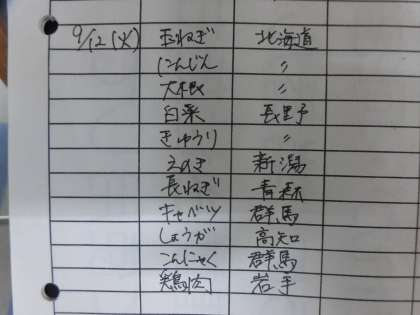 9/12(火) 玉ねぎ 北海道
にんじん 〃
大根 〃
白菜 長野
きゅうり 〃
えのき 新潟
長ねぎ 青森
キャベツ 群馬
しょうが 高知
こんにゃく 群馬
鶏肉 岩手